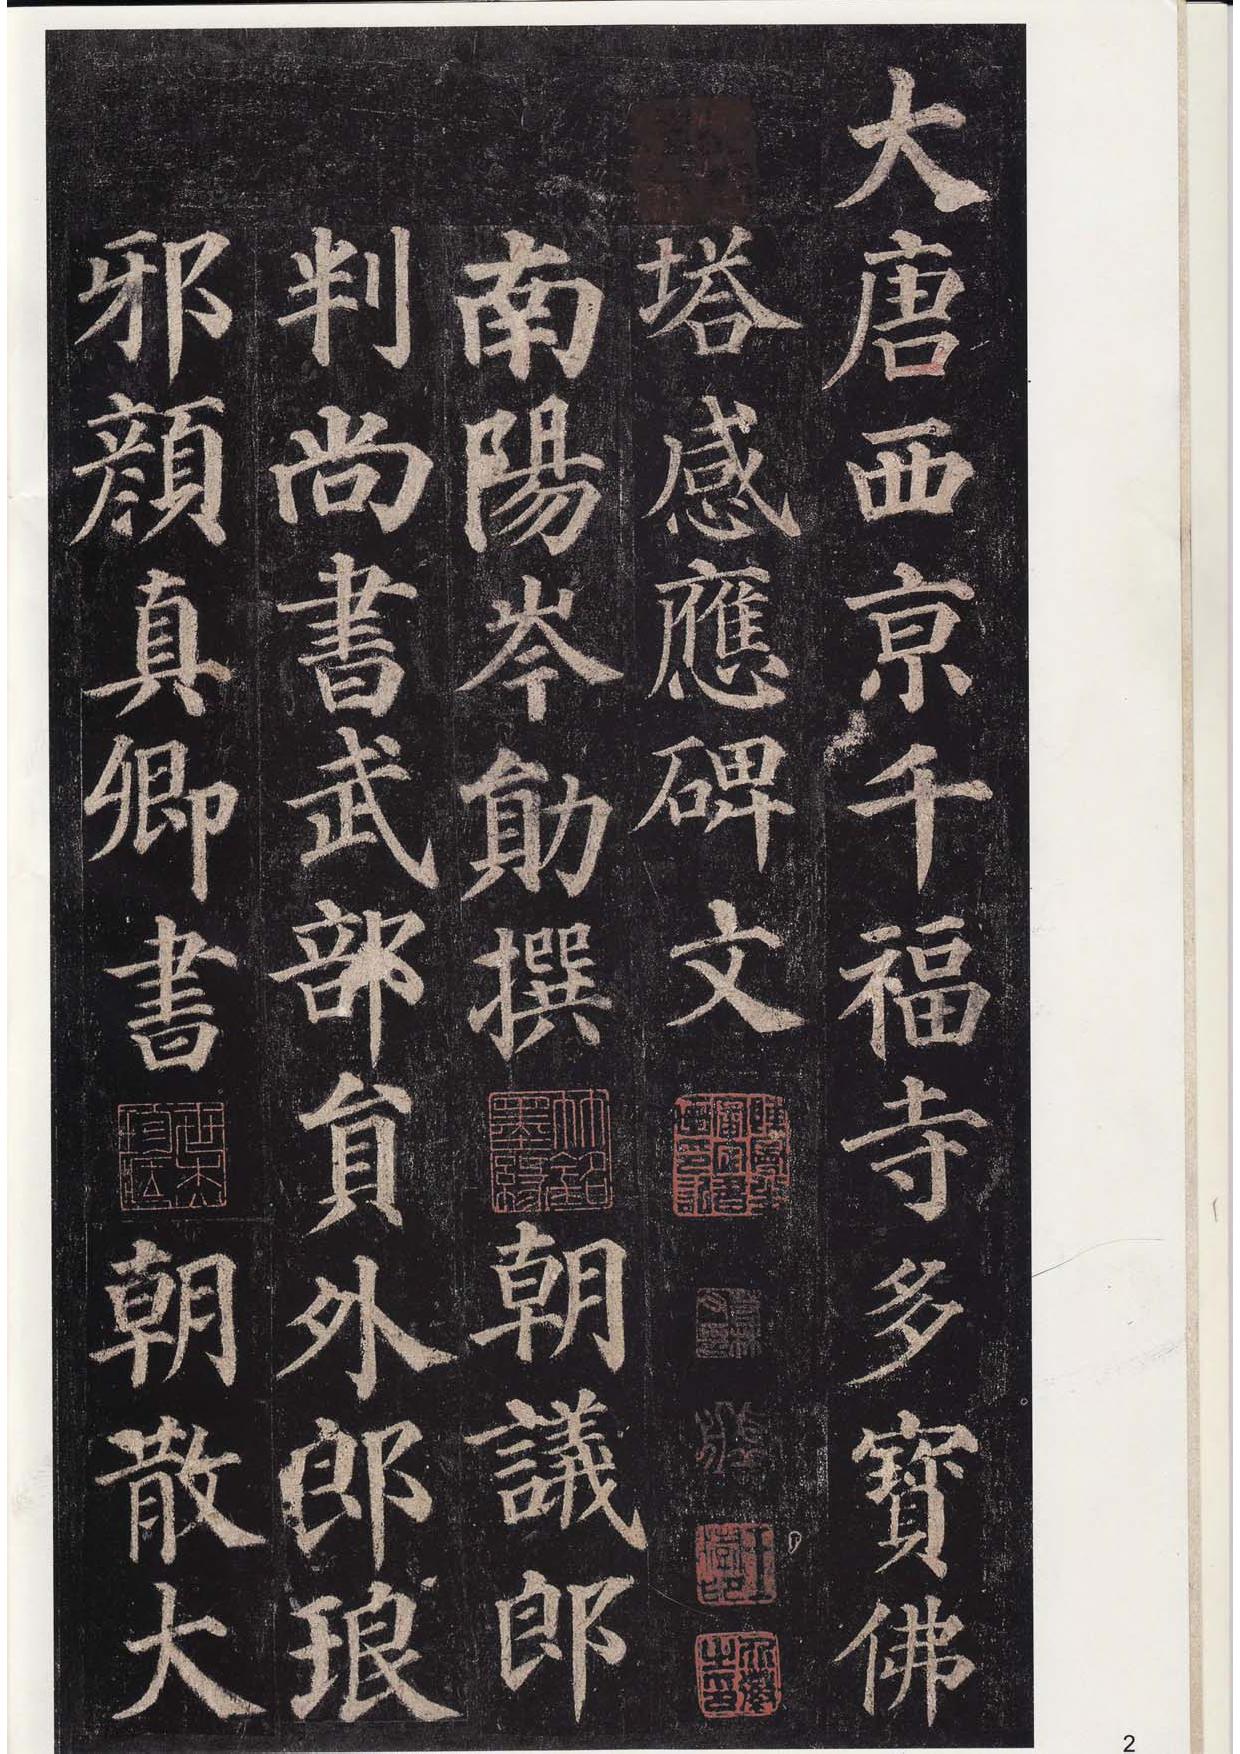 大唐西京千福寺多寶佛
塔感應碑文
南陽岑勛撰朝議郎
判尚書武部員外郎琅
邪顏真卿書朝散大
2